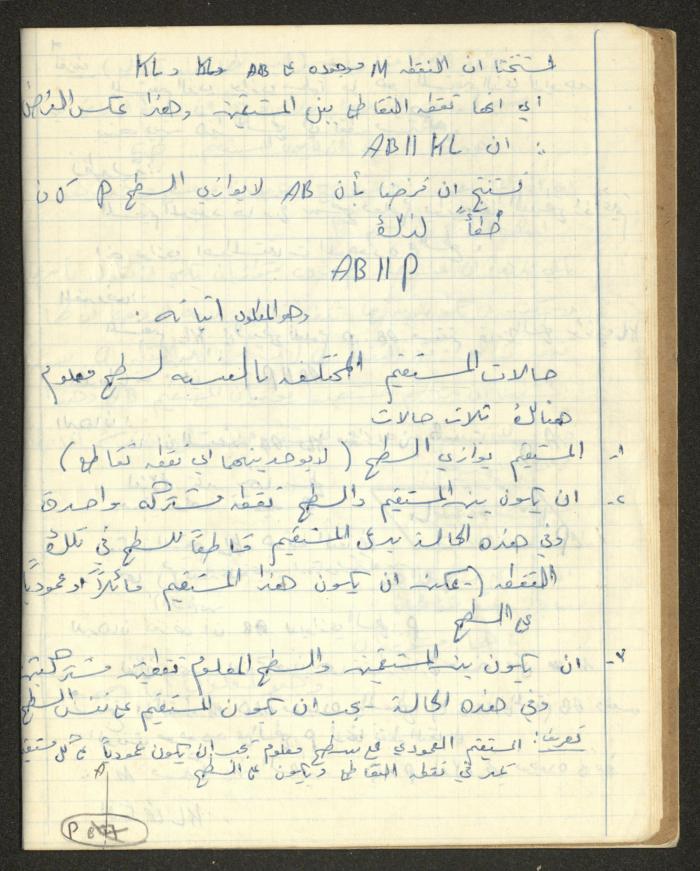 استنتجنا ان النقطه M موجوده على AB و KL
اي انها نقطه التقاطع بين المستقيمين وهذا عكس الفرض
∴ ان AB II KL
نستنتج ان فرضنا بأن AB لا يوازي السطح P كان
خطأً لذلك
AB II P
وهو المطلوب اثباته :
حالات المستقيم المختلفه بالنسبه لسطح معلوم
هنالك ثلاث حالات
١- المستقيم يوازي السطح ( لا يوجد بينهما اي نقطه تقاطع )
٢- ان يكون بين المستقيم والسطح نقطه مشتركه واحدة
وفي هذه الحالة المستقيم قاطعاً للسطح في تلك
النقطه ( يمكن ان يكون هذا المستقيم مائلاً او عمودياً
على السطح
٣- ان يكون بين المستقيمين والسطح المعلوم نقطتين مشتركتين
وفي هذه الحالة يجب ان يكون المستقيم على نفس السطح
تعريف : المستقيم العمودي مع سطح معلوم يجب ان يكون عمودياً على كل مستقيم
يمر في نقطه التقاطع ويكون على السطح
A
P